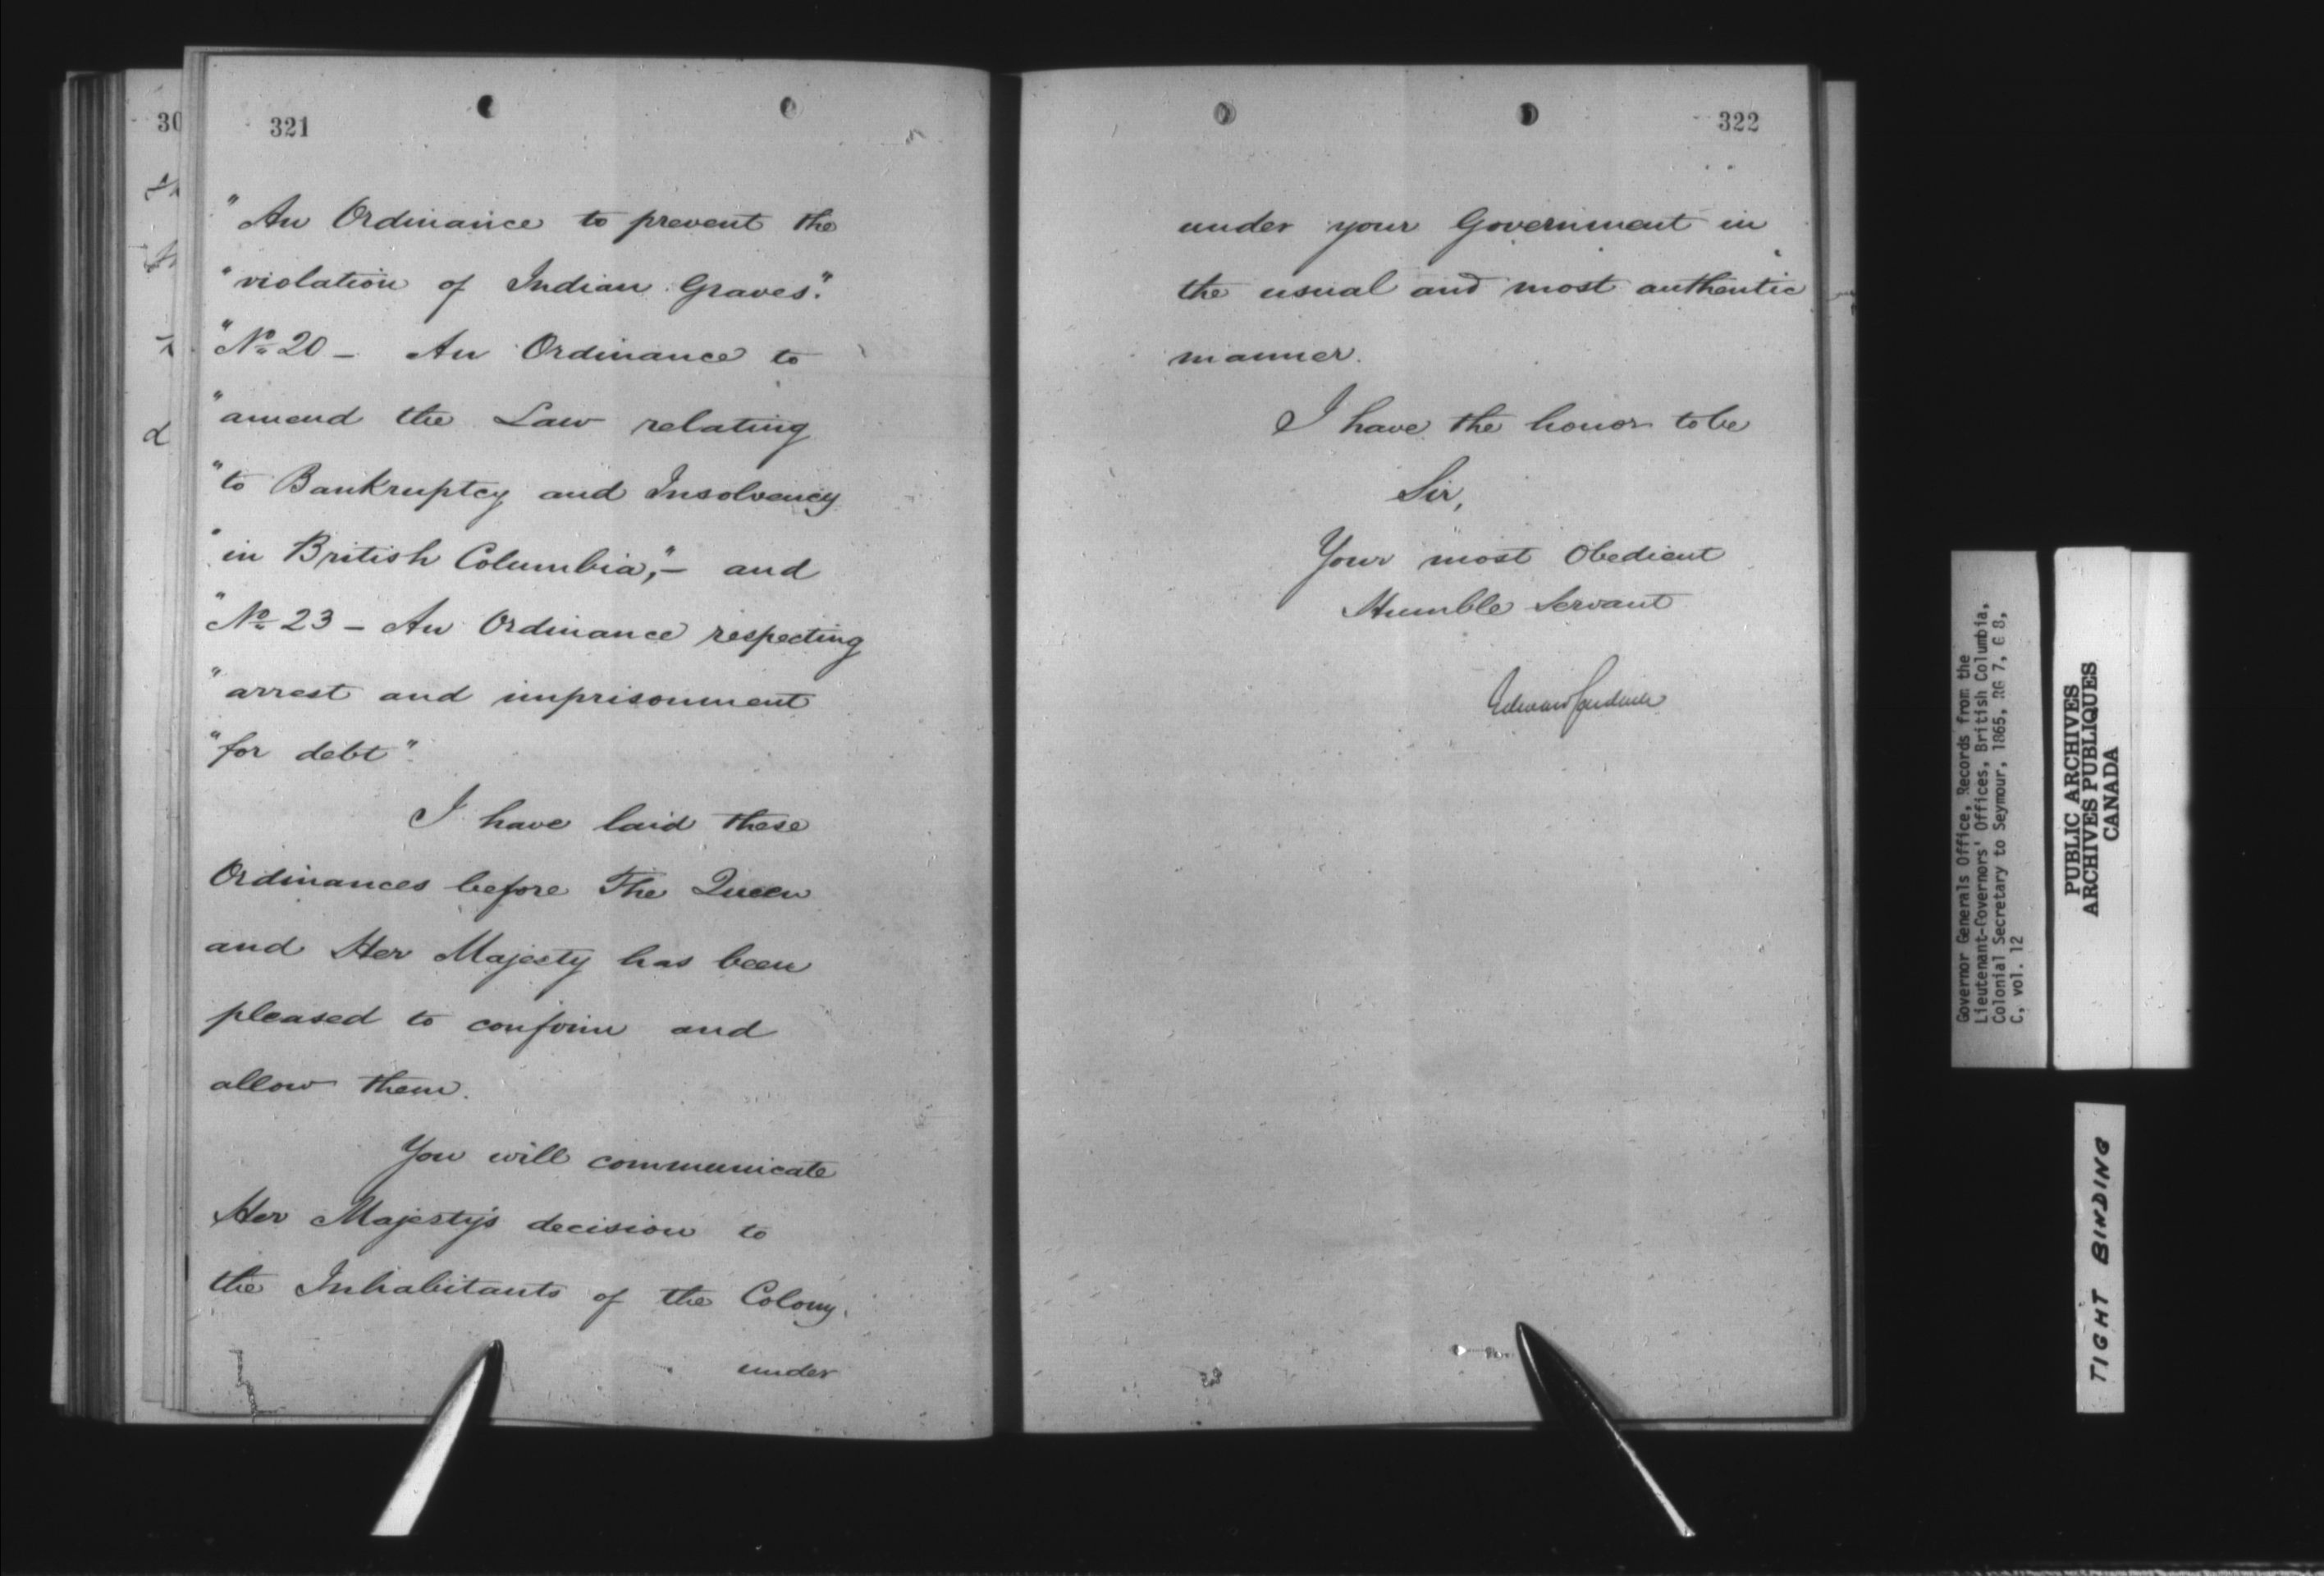 321
"An Ordinance to prevent the
"violation of Indian Graves".
"No. 20 - An Ordinance to
"amend the Law relating
"to Bankruptcy and Insolvency
"in British Columbia,"- and
"No. 23 - An Ordinance respecting
"arrest and imprisonment
"for debt".
I have laid these
Ordinances before The Queen
and Her Majesty has been
pleased to confirm and
allow them.
You will communicate
Her Majesty's decision to
the Inhabitants of the Colony.
under
322
under your Government in
the usual and most authentic
manner.
I have the honor to be
Sir,
Your most Obedient
Humble Servant
Edward Cardwell
Governor Generals Office, Records from the
Lieutenant-Governors' Offices, British Columbia,
Colonial Secretary to Seymour, 1865, RG 7, G 8,
C, vol. 12
PUBLIC ARCHIVES
ARCHIVES PUBLIQUES
CANADA
TIGHT BINDING